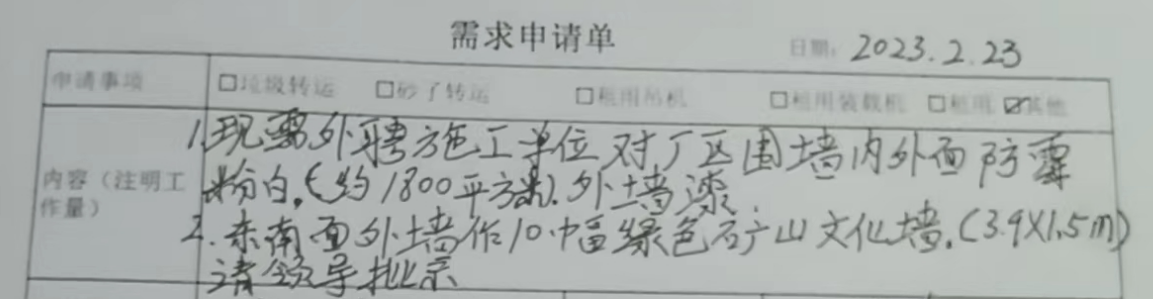 需求申请单
日期: 2023.2.23
申请事项 □垃圾转运 □砂子转运 □租用吊机 □租用装载机 □租用 ☑其他
内容（注明工作量）
1.现需外聘施工单位对厂区围墙内外面防霉
粉白,(约1800平方米).外墙漆.
2.东南面外墙作10幅绿色矿山文化墙.(3.9X1.5m)
请领导批示